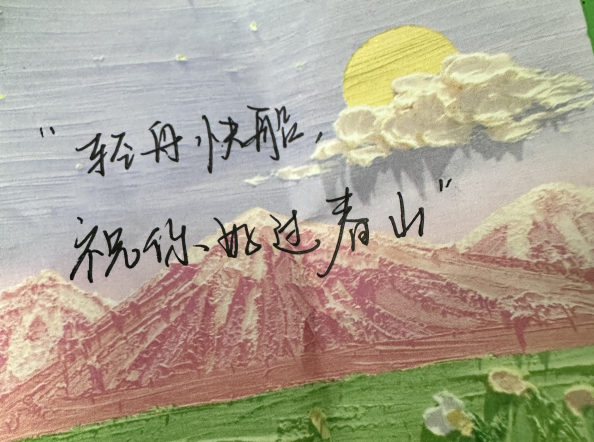 “轻舟快船,
祝你 过春山”